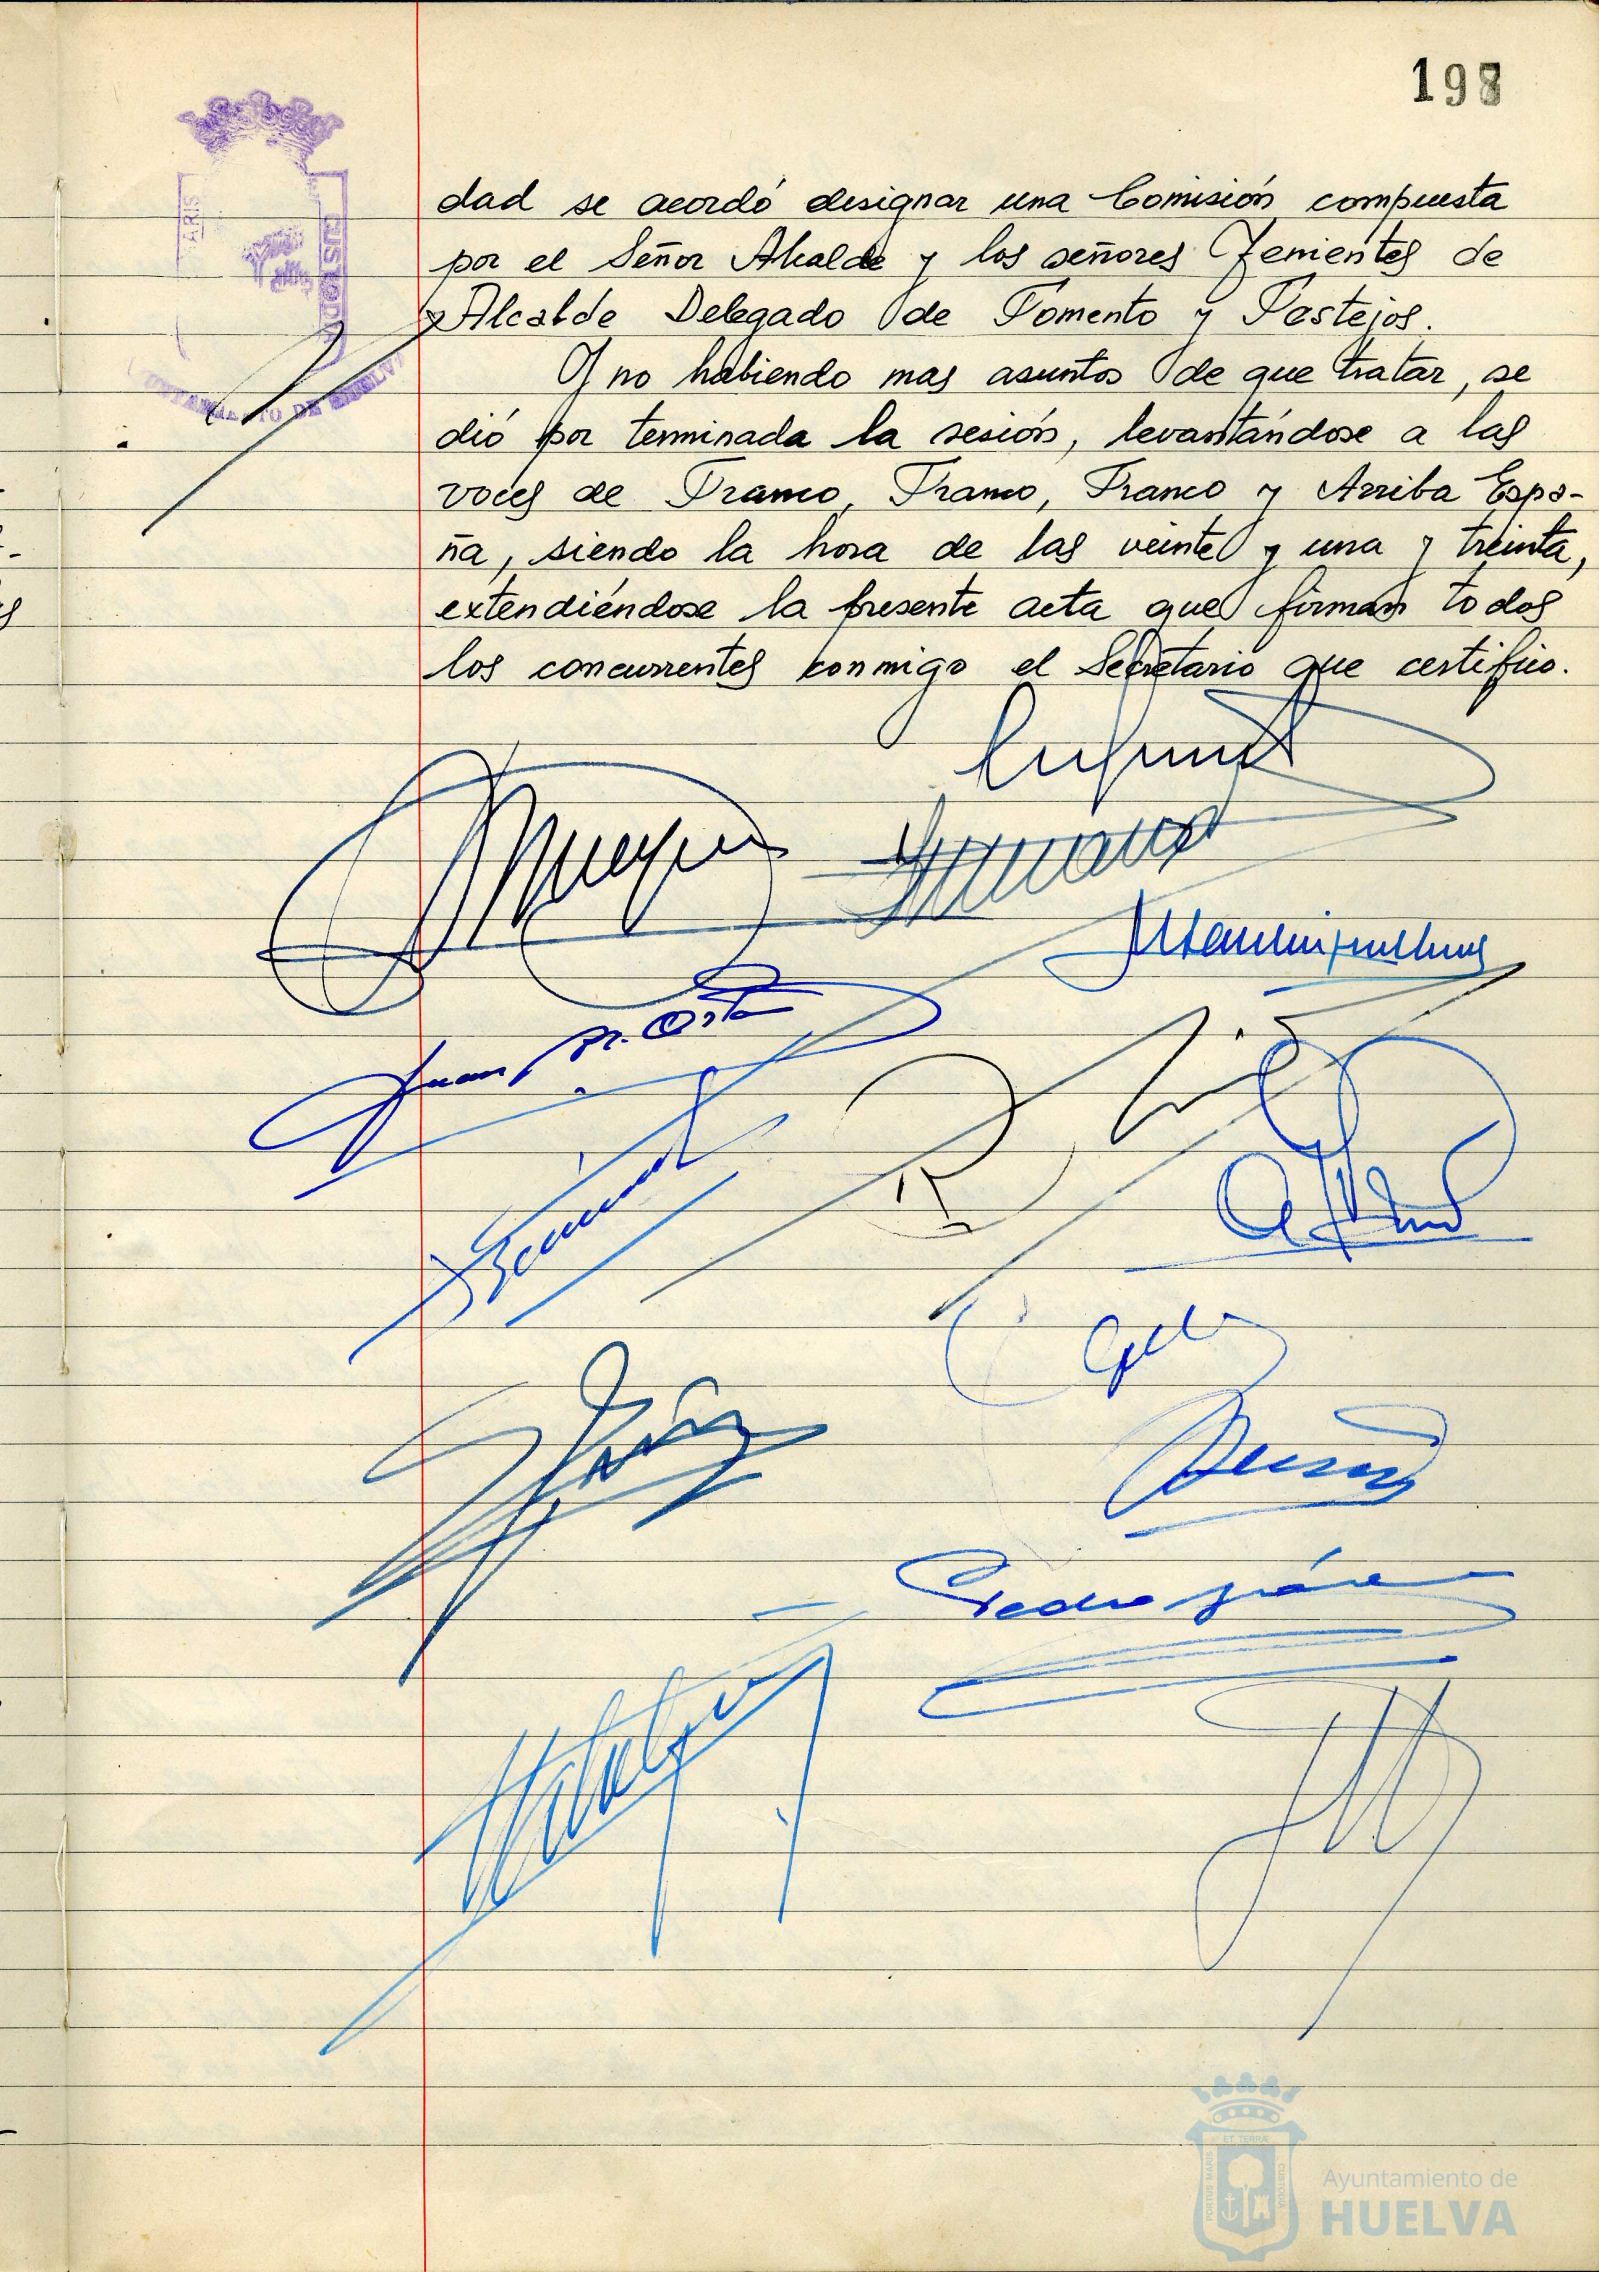 198
dad se acordó designar una Comisión compuesta
por el Señor Alcalde y los señores Tenientes de
Alcalde Delegado de Fomento y Festejos.
Y no habiendo mas asuntos de que tratar, se
dió por terminada la sesión, levantándose a las
voces de Franco, Franco, Franco y Arriba Espa-
ña, siendo la hora de las veinte y una y treinta,
extendiéndose la presente acta que firman todos
los concurrentes conmigo el Secretario que certifico.
CUSTODIA
AYUNTAMIENTO DE HUELVA
Juan
Pedro
PORTUS MARIS
ET TERRÆ
CUSTODIA
Ayuntamiento de
HUELVA